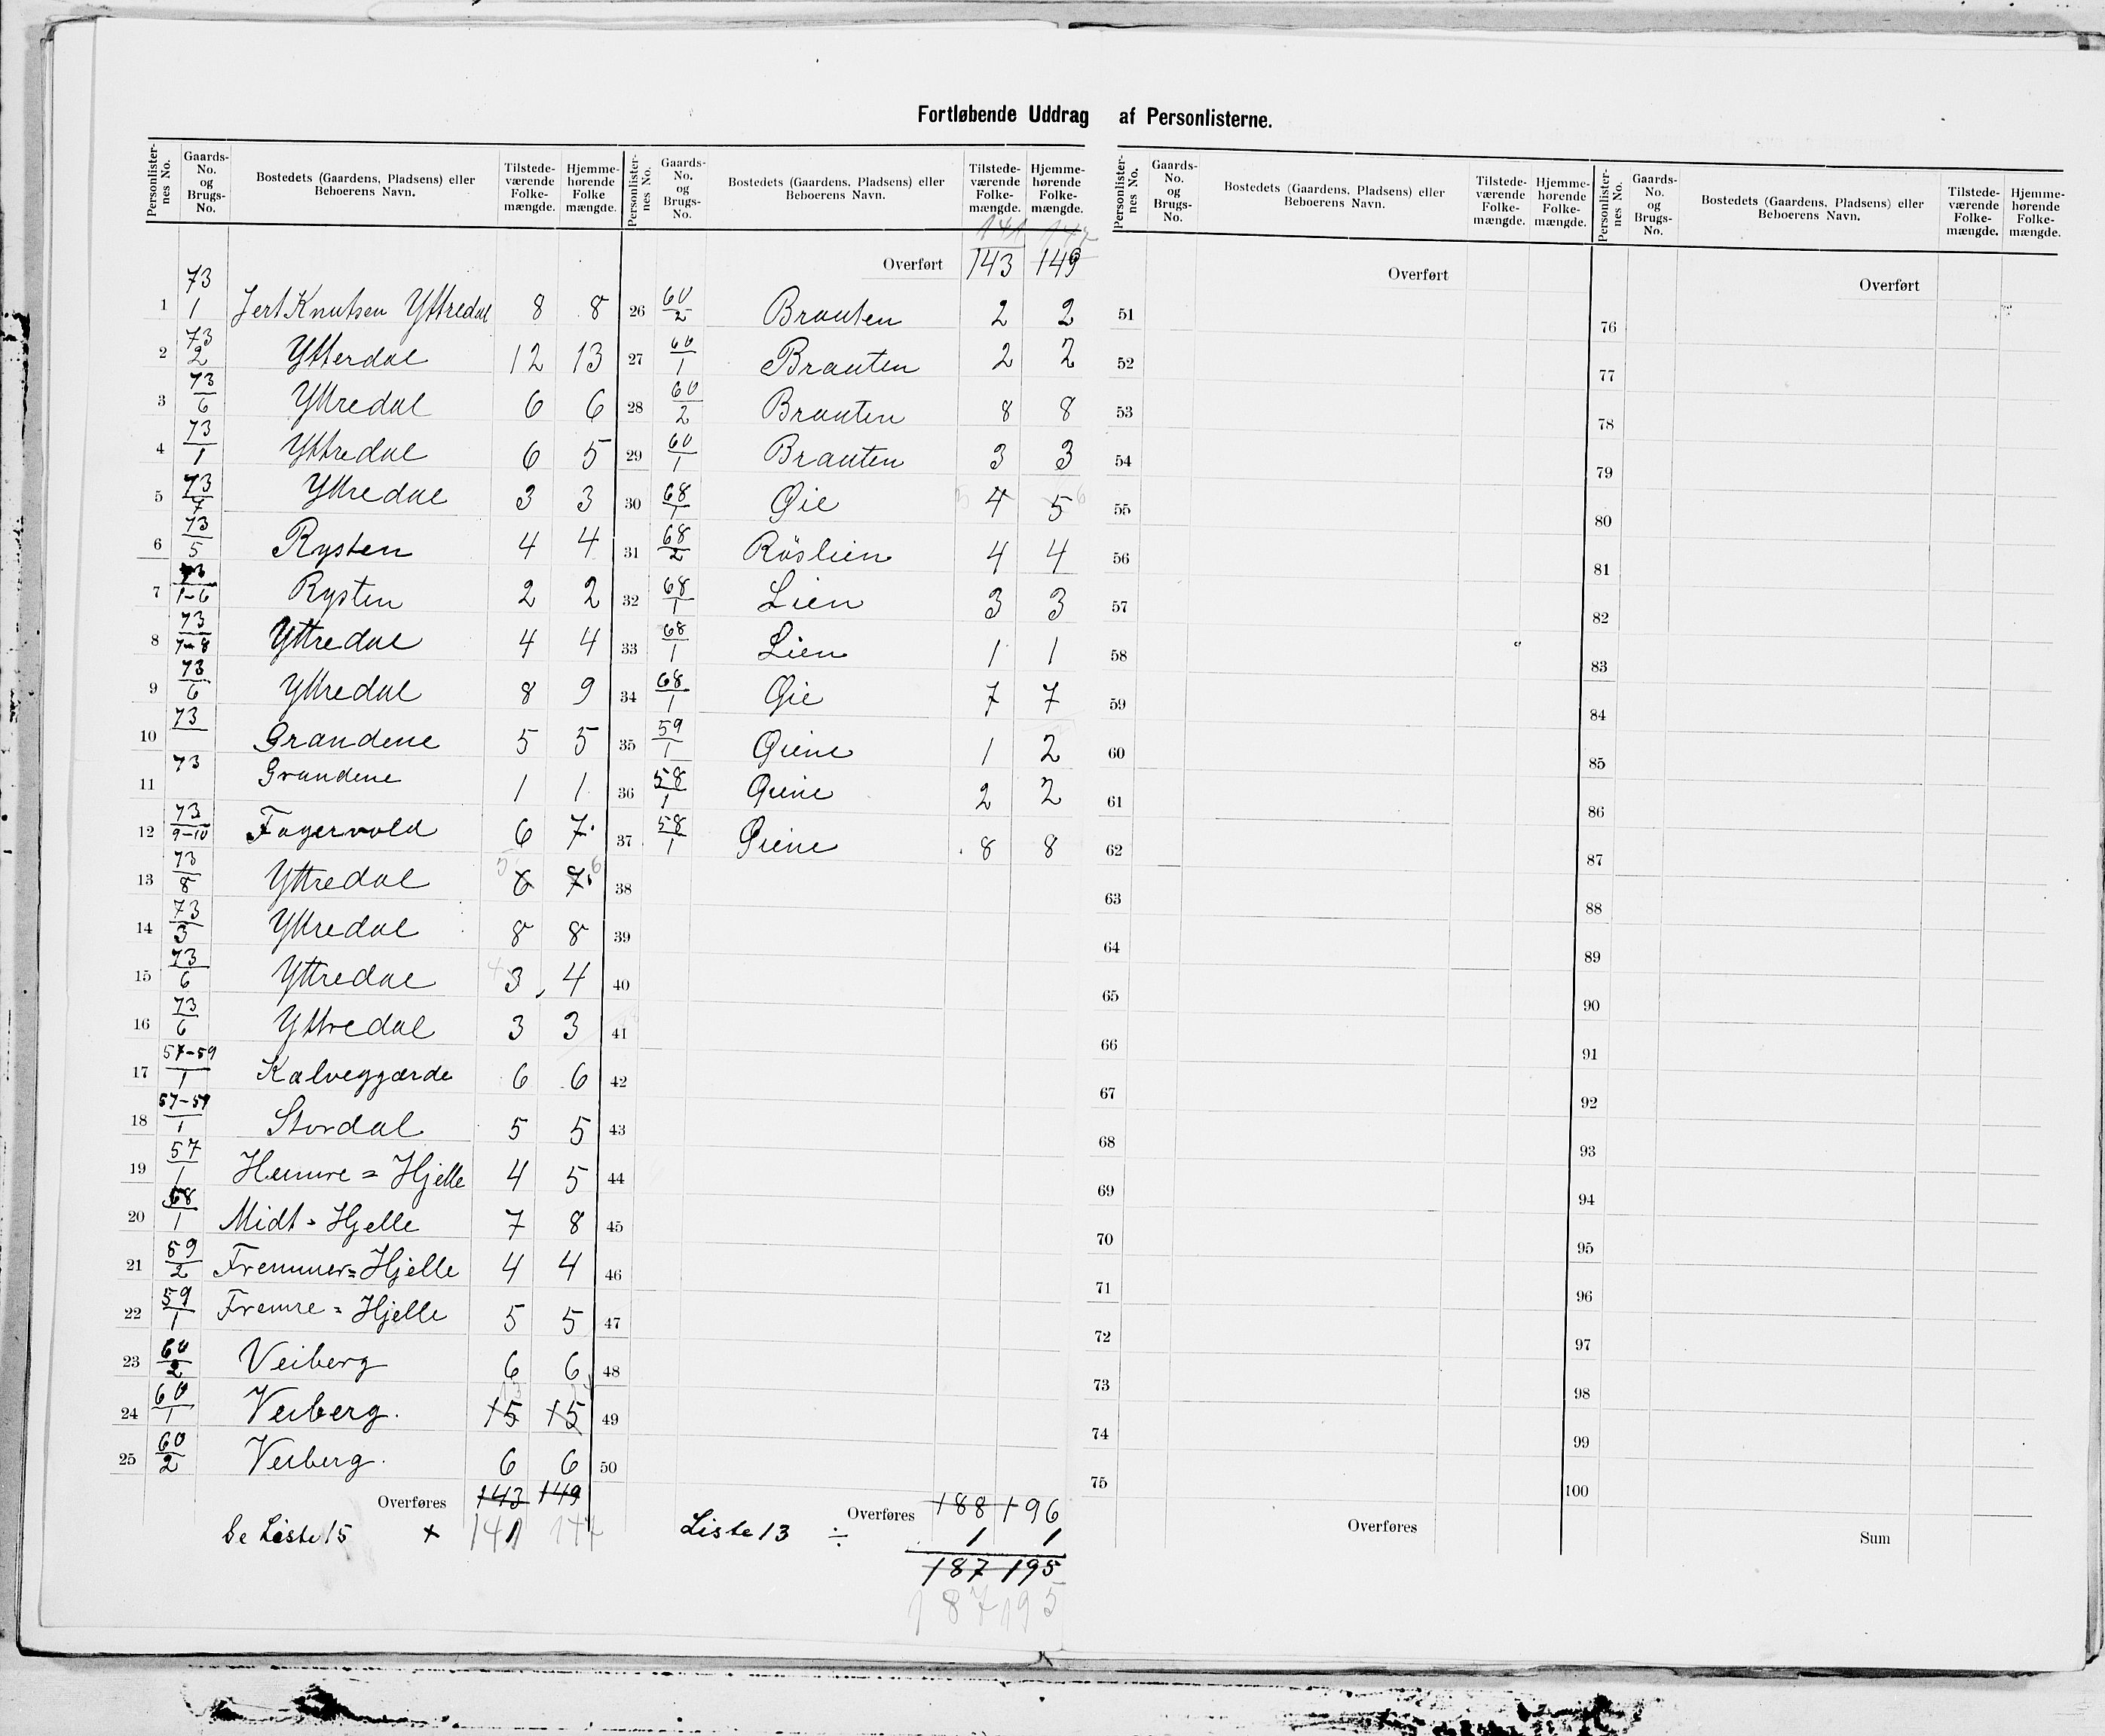 Fortløbende Uddrag af Personlisterne.
Personlister-nes No. Gaards-No. og Brugs-No. Bostedets (Gaardens, Pladsens) eller Beboerens Navn. Tilstede-værende Folke-mængde. Hjemme-hørende Folke mængde.
1 73/1 Jert Knutsen Yttredal 8 8
2 73/2 Ytterdal 12 13
3 73/6 Yttredal 6 6
4 73/1 Yttredal 6 5
5 73/7 Yttredal 3 3
6 73/5 Rysten 4 4
7 73/1-6 Rysten 2 2
8 73/7-8 Yttredal 4 4
9 73/6 Yttredal 8 9
10 73 Grandene 5 5
11 73 Grandene 1 1
12 73/9-10 Fagervold 6 7
13 73/8 Yttredal 5 6 7 6
14 73/3 Yttredal 8 8
15 73/6 Yttredal 4 3 4
16 73/6 Yttredal 3 3
17 57-59/1 Kalveggjærde 6 6
18 57-59/1 Stordal 5 5
19 57/1 Heimre = Hjelle 4 5
20 58/1 Midt = Hjelle 7 8
21 59/2 Fremmer = Hjelle 4 4
22 59/1 Fremre = Hjelle 5 5
23 60/2 Veiberg 6 6
24 60/1 Veiberg. 15 15
25 60/2 Veiberg. 6 6
Overføres 143 149
Se Liste 15 + 141 147
Personlister-nes No. Gaards-No. og Brugs-No. Bostedets (Gaardens, Pladsens) eller Beboerens Navn. Tilstede-værende Folke-mængde. Hjemme-hørende Folke-mængde.
141 147
Overført 143 149
26 60/2 Brauten 2 2
27 60/1 Brauten 2 2
28 60/2 Brauten 8 8
29 60/1 Brauten 3 3
30 68/1 Øie 5 4 5 6
31 68/2 Röslien 4 4
32 68/1 Lien 3 3
33 68/1 Lien 1 1
34 68/1 Øie 7 7
35 59/1 Øiene 1 2
36 58/1 Øiene 2 2
37 58/1 Øiene 8 8
38
39
40
41
42
43
44
45
46
47
48
49
50
Overføres 188 196
Liste 13 ÷ 1 1
187 195
187 195
Personlister-nes No. Gaards-No. og Brugs-No. Bostedets (Gaardens, Pladsens) eller Beboerens Navn. Tilstede-værende Folke-mængde. Hjemme-hørende Folke-mængde.
Overført
51
52
53
54
55
56
57
58
59
60
61
62
63
64
65
66
67
68
69
70
71
72
73
74
75
Overføres
Personlister-nes No. Gaards-No. og Brugs-No. Bostedets (Gaardens, Pladsens) eller Beboerens Navn. Tilstede-værende Folke-mængde. Hjemme-hørende Folke-mængde.
Overført
76
77
78
79
80
81
82
83
84
85
86
87
88
89
90
91
92
93
94
95
96
97
98
99
100
Sum